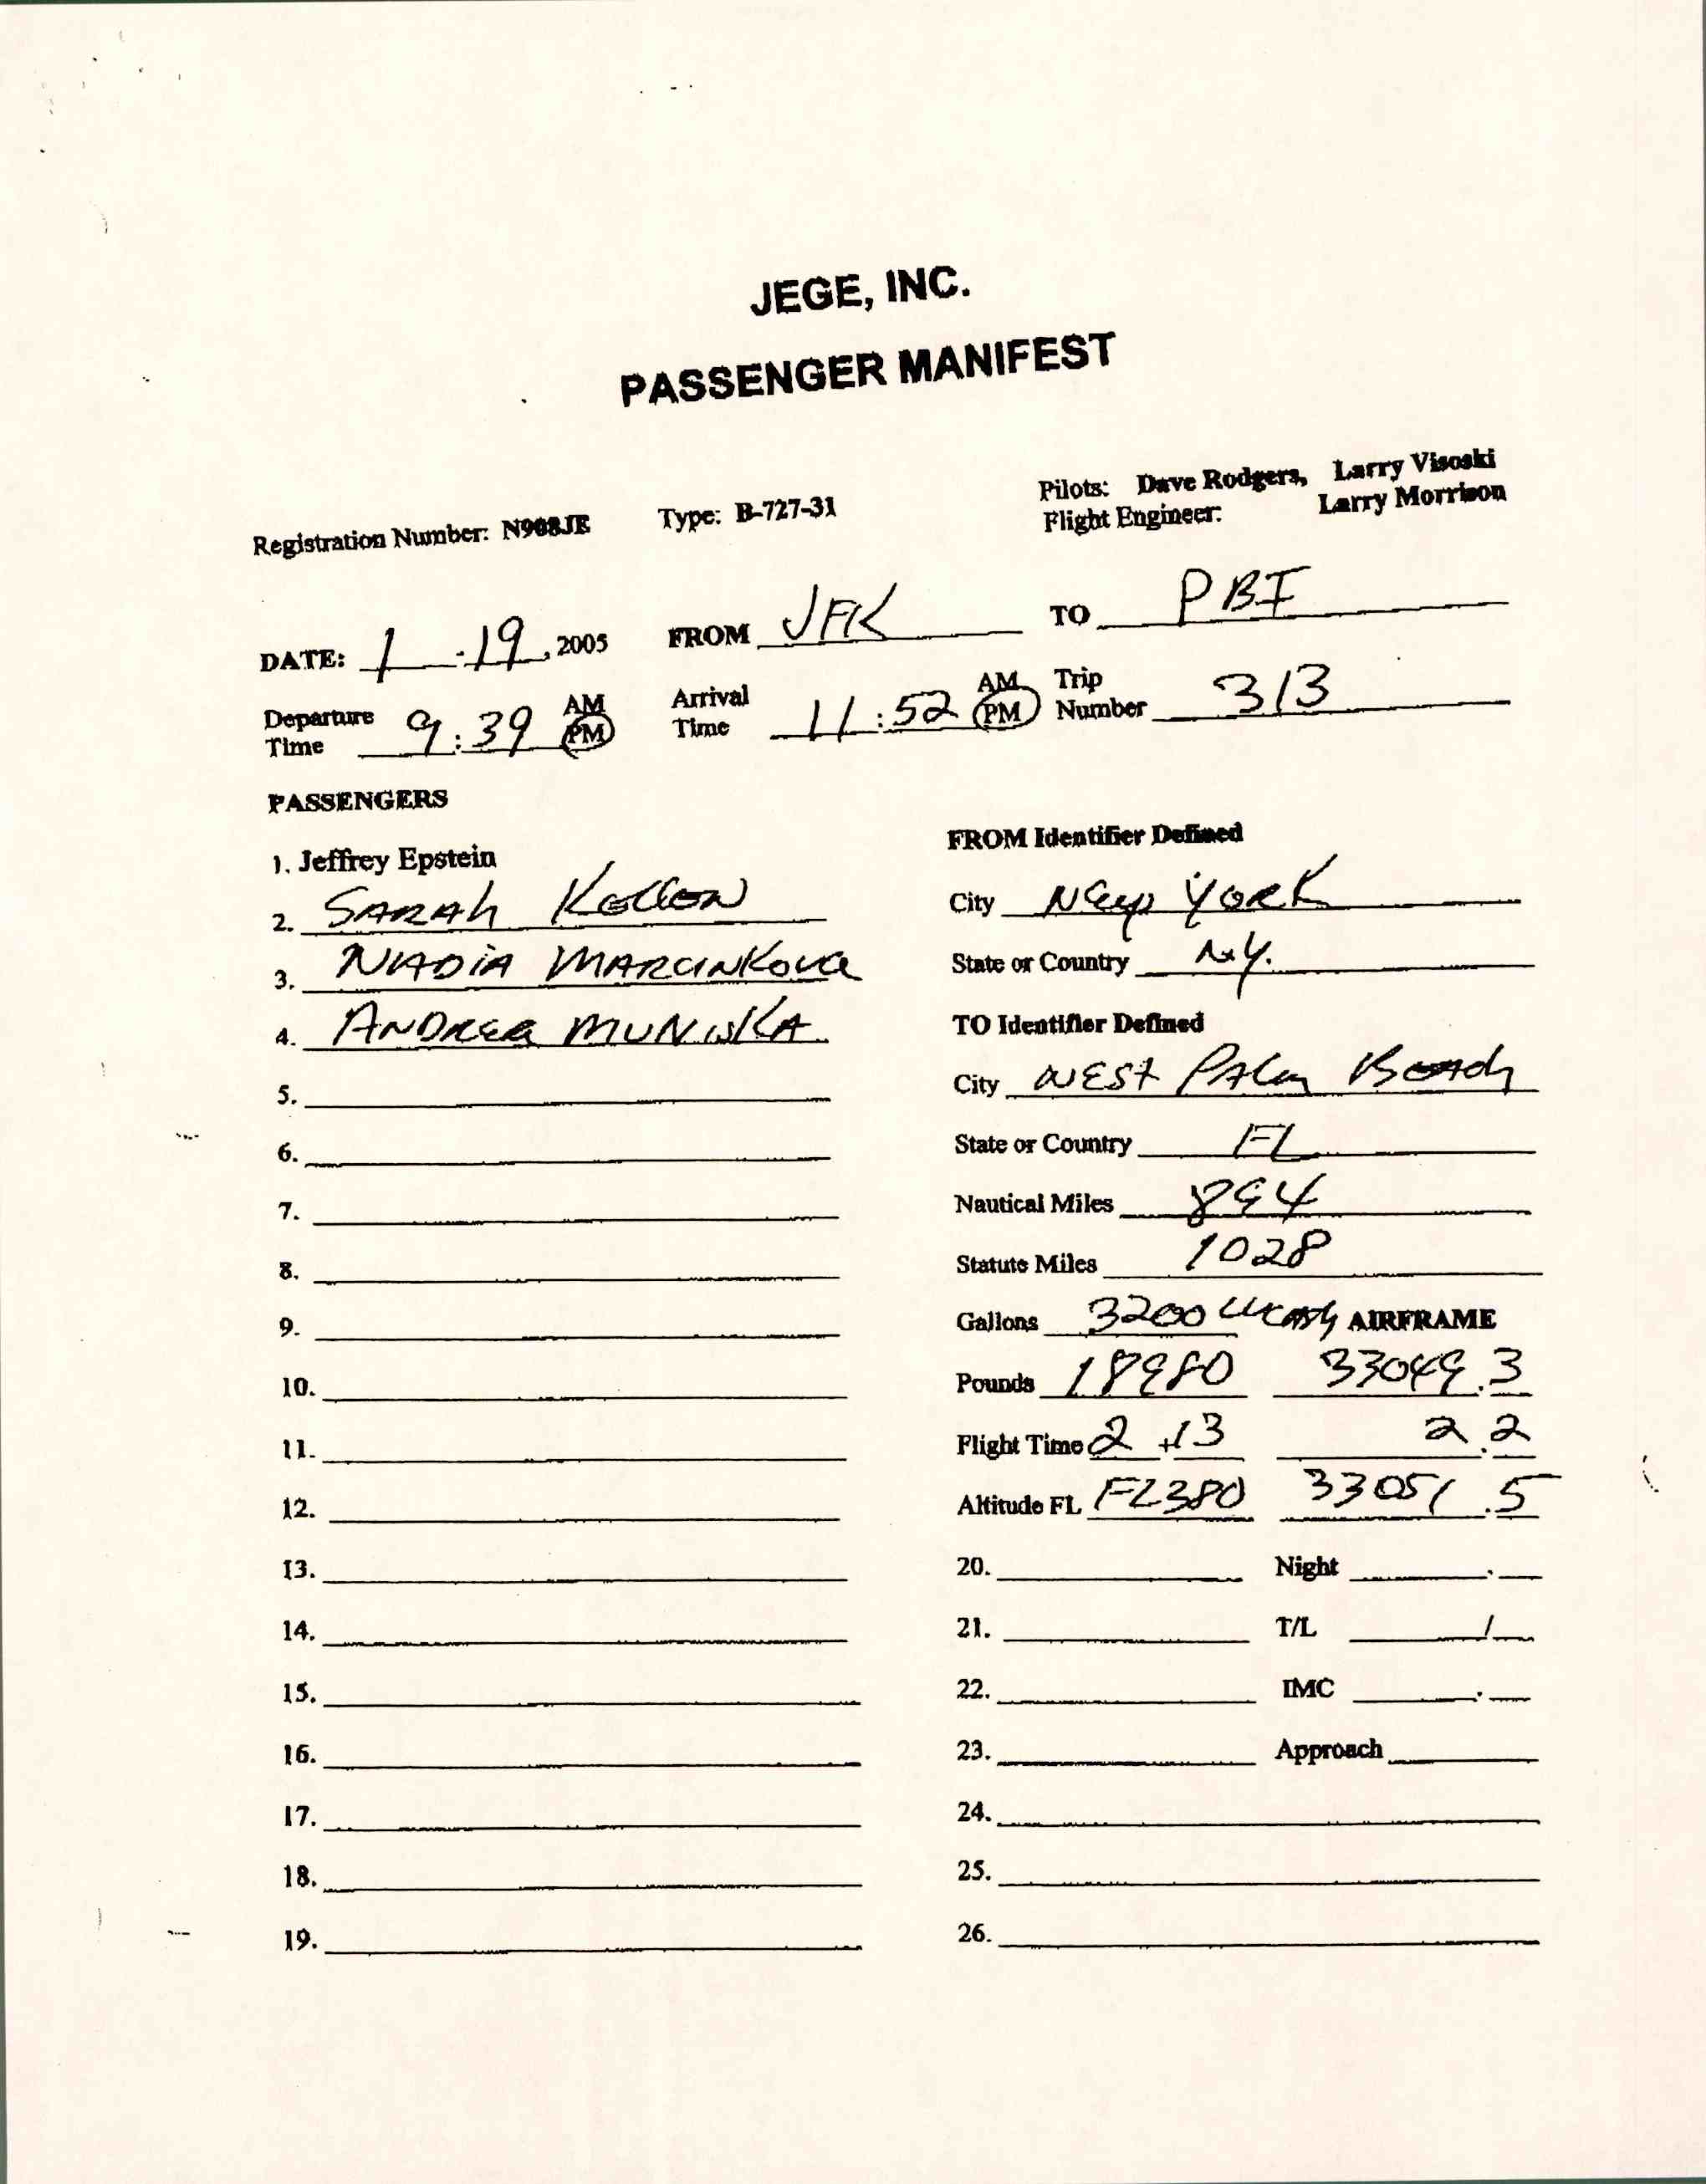 JEGE, INC.
PASSENGER MANIFEST
Registration Number: N908JE Type: B-727-31 Pilots: Dave Rodgers, Larry Visoski
Flight Engineer: Larry Morrison
DATE: 1 - 19, 2005 FROM JFK TO PBI
Departure Time 9:39 AM PM Arrival Time 11:52 AM PM Trip Number 313
PASSENGERS
FROM Identifier Defined
1. Jeffrey Epstein
City New York
2. SARAh Kellen
State or Country N.Y.
3. NADiA MARCiNKova
TO Identifier Defined
4. ANDREA MUNiSKA
City WEST PAlm BeAch
5.
State or Country FL
6.
Nautical Miles 894
7.
Statute Miles 1028
8.
Gallons 3200 AIRFRAME
9.
Pounds 18980 33049.3
10.
Flight Time 2+13 2.2
11.
Altitude FL FL380 33051.5
12.
13.
20. Night .
14.
21. T/L /
15.
22. IMC .
16.
23. Approach
17.
24.
18.
25.
19.
26.